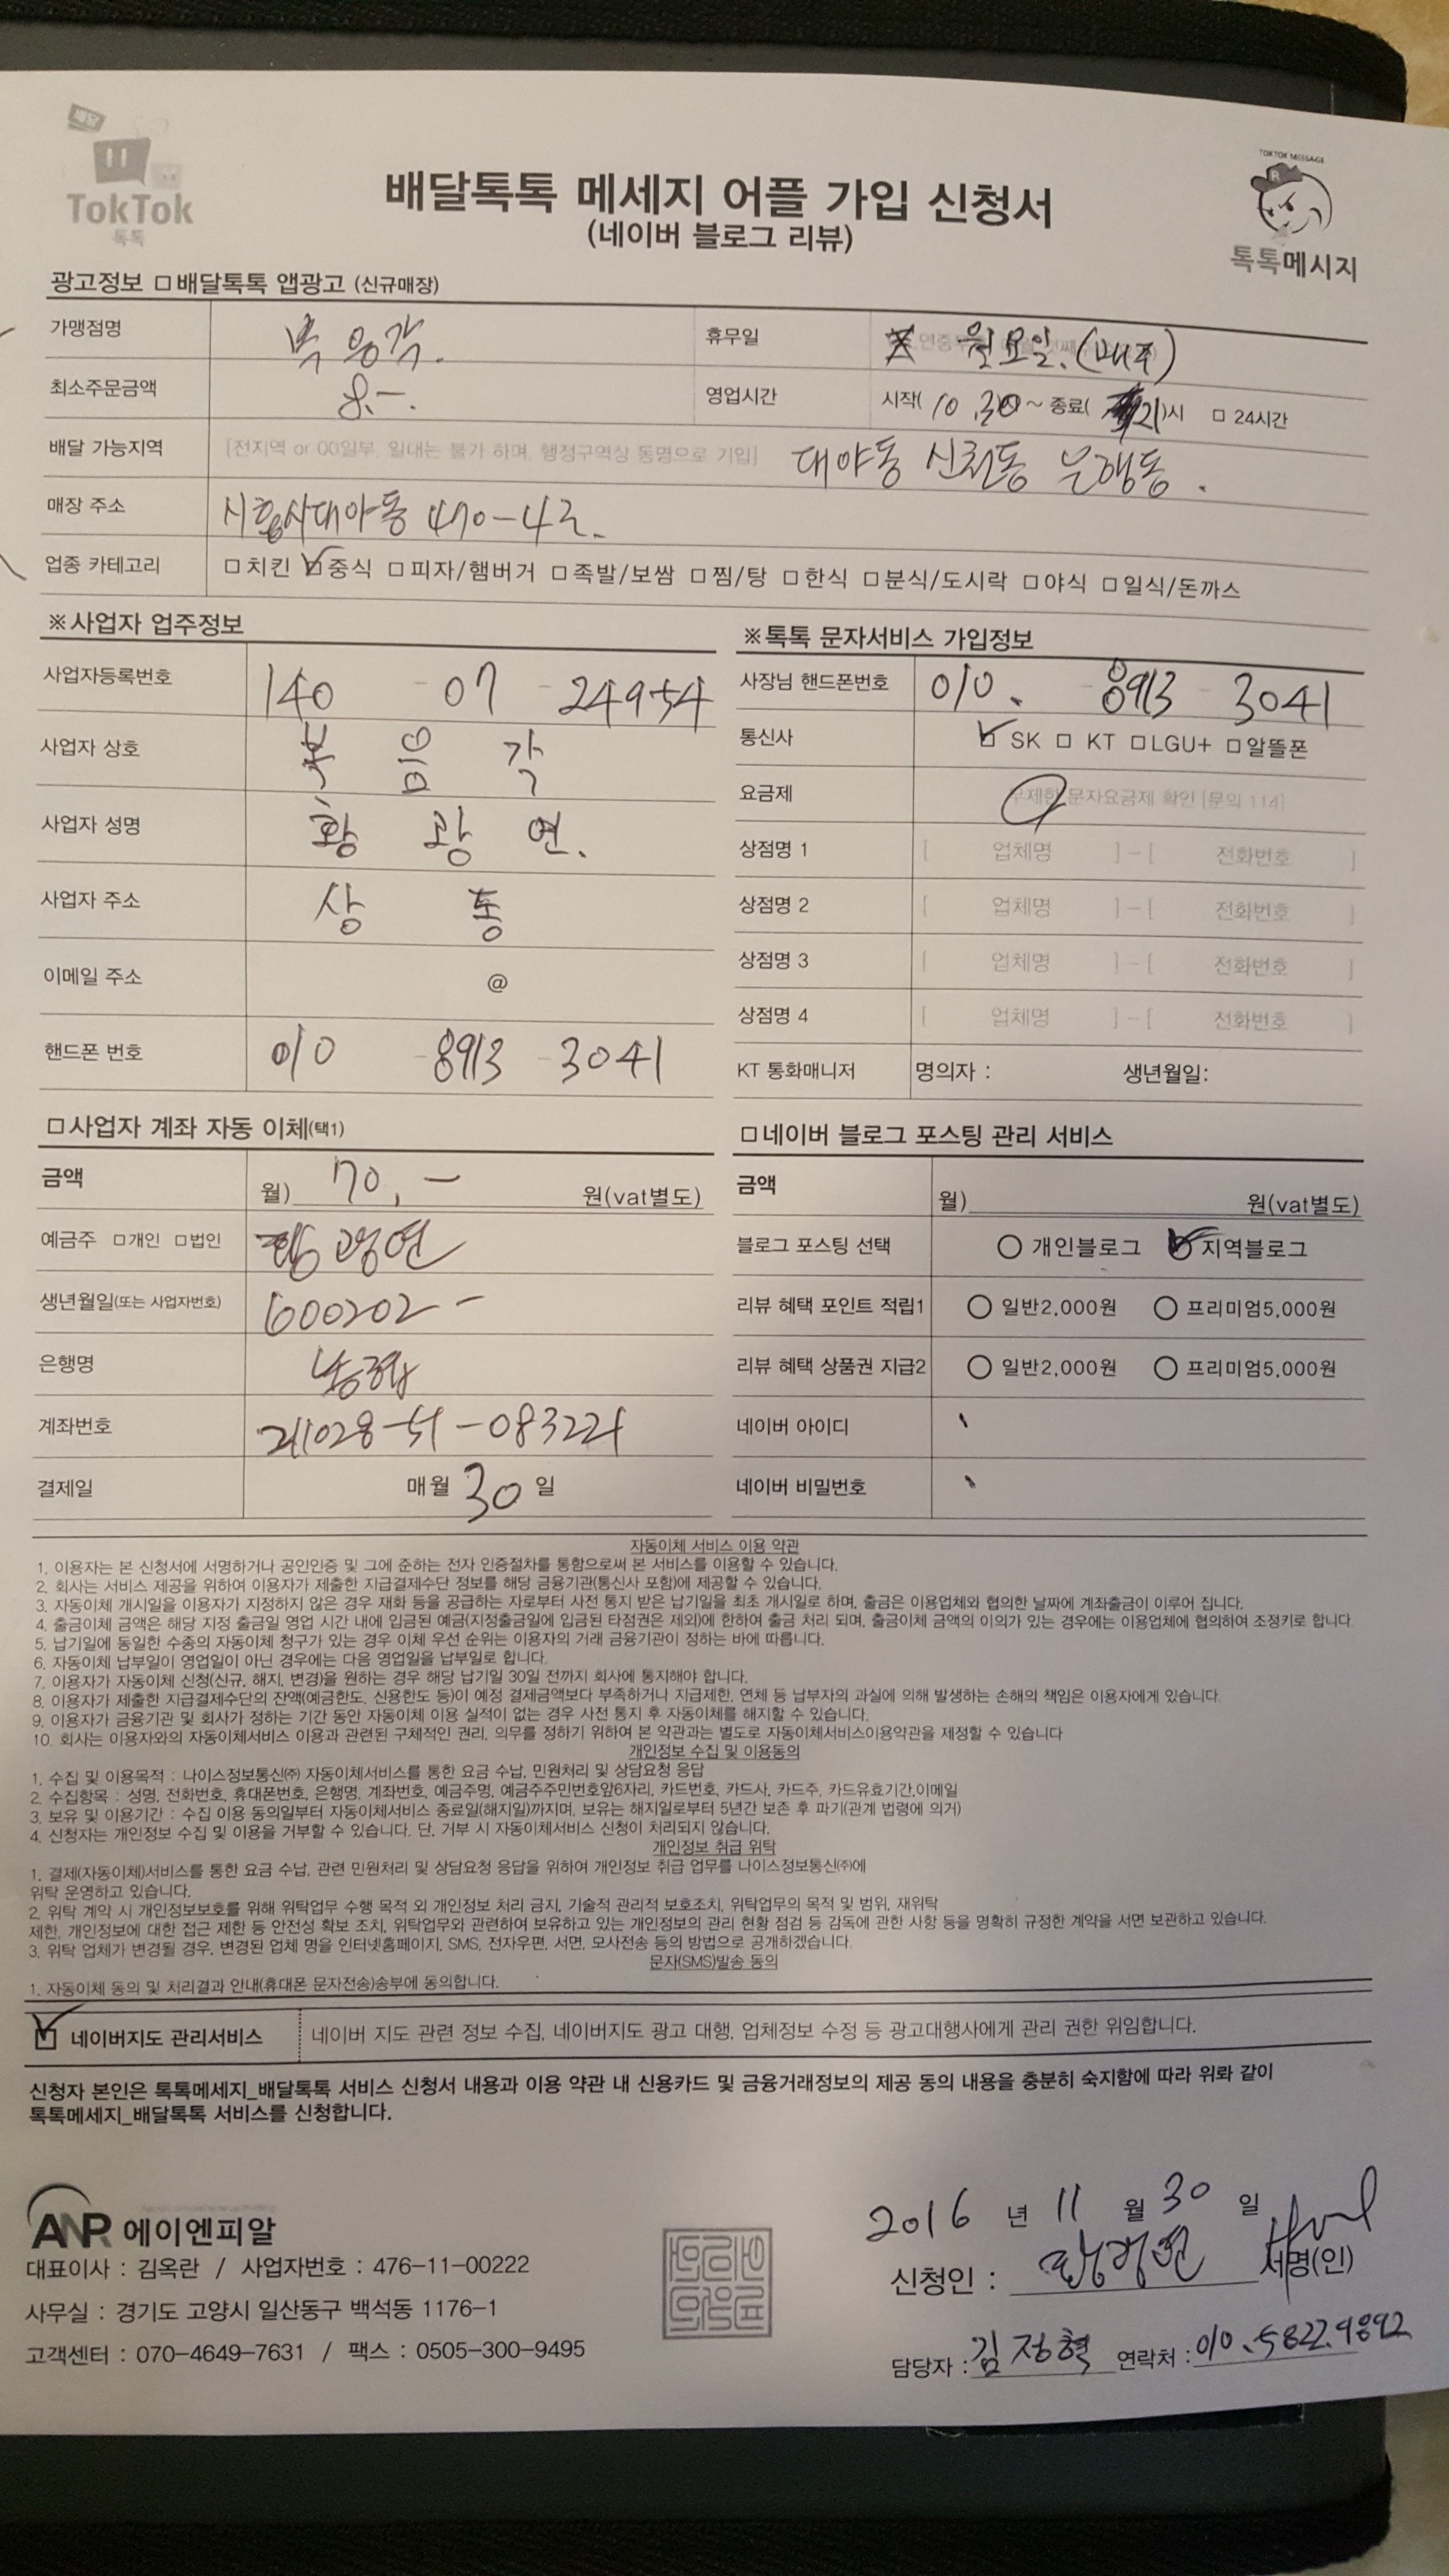 TokTok
톡톡
배달톡톡 메세지 어플 가입 신청서
(네이버 블로그 리뷰)
TOKTOK MESSAGE
톡톡메시지
광고정보 □ 배달톡톡 앱광고 (신규매장)
가맹점명
휴무일 월요일.(매주)
최소주문금액 8.-.
영업시간 시작( 10.30 ~ 종료( 21)시 □ 24시간
배달 가능지역 [전지역 or 00일부, 일내는 불가 하며, 행정구역상 동명으로 기입] 대야동 신천동 은행동.
매장 주소 시흥시대야동 470-4
업종 카테고리 □치킨 ☑중식 □피자/햄버거 □족발/보쌈 □찜/탕 □한식 □분식/도시락 □야식 □일식/돈까스
※사업자 업주정보
사업자등록번호 140 - 07 - 24954
사업자 상호 북 음 각
사업자 성명 황 광 연.
사업자 주소 상 동
이메일 주소 @
핸드폰 번호 010 - 8913 - 3041
※톡톡 문자서비스 가입정보
사장님 핸드폰번호 010. - 8913 - 3041
통신사 ☑ SK □ KT □LGU+ □알뜰폰
요금제 무제한 문자요금제 확인 [문의 114]
상점명 1 [ 업체명 ] - [ 전화번호 ]
상점명 2 [ 업체명 ] - [ 전화번호 ]
상점명 3 [ 업체명 ] - [ 전화번호 ]
상점명 4 [ 업체명 ] - [ 전화번호 ]
KT 통화매니저 명의자 : 생년월일:
□사업자 계좌 자동 이체(택1)
금액 월) 70,- 원(vat별도)
예금주 □개인 □법인 황광연
생년월일(또는 사업자번호) 600202-
은행명 농협
계좌번호 211028-51-083221
결제일 매월 30 일
□네이버 블로그 포스팅 관리 서비스
금액 월) 원(vat별도)
블로그 포스팅 선택 ○ 개인블로그 ☑ 지역블로그
리뷰 혜택 포인트 적립1 ○ 일반2,000원 ○ 프리미엄5,000원
리뷰 혜택 상품권 지급2 ○ 일반2,000원 ○ 프리미엄5,000원
네이버 아이디
네이버 비밀번호
자동이체 서비스 이용 약관
1. 이용자는 본 신청서에 서명하거나 공인인증 및 그에 준하는 전자 인증절차를 통함으로써 본 서비스를 이용할 수 있습니다.
2. 회사는 서비스 제공을 위하여 이용자가 제출한 지급결제수단 정보를 해당 금융기관(통신사 포함)에 제공할 수 있습니다.
3. 자동이체 개시일을 이용자가 지정하지 않은 경우 재화 등을 공급하는 자로부터 사전 통지 받은 납기일을 최초 개시일로 하며, 출금은 이용업체와 협의한 날짜에 계좌출금이 이루어 집니다.
4. 출금이체 금액은 해당 지정 출금일 영업 시간 내에 입금된 예금(지정출금일에 입금된 타점권은 제외)에 한하여 출금 처리 되며, 출금이체 금액의 이의가 있는 경우에는 이용업체에 협의하여 조정키로 합니다.
5. 납기일에 동일한 수종의 자동이체 청구가 있는 경우 이체 우선 순위는 이용자의 거래 금융기관이 정하는 바에 따릅니다.
6. 자동이체 납부일이 영업일이 아닌 경우에는 다음 영업일을 납부일로 합니다.
7. 이용자가 자동이체 신청(신규, 해지, 변경)을 원하는 경우 해당 납기일 30일 전까지 회사에 통지해야 합니다.
8. 이용자가 제출한 지급결제수단의 잔액(예금한도, 신용한도 등)이 예정 결제금액보다 부족하거나 지급제한, 연체 등 납부자의 과실에 의해 발생하는 손해의 책임은 이용자에게 있습니다.
9. 이용자가 금융기관 및 회사가 정하는 기간 동안 자동이체 이용 실적이 없는 경우 사전 통지 후 자동이체를 해지할 수 있습니다.
10. 회사는 이용자와의 자동이체서비스 이용과 관련된 구체적인 권리, 의무를 정하기 위하여 본 약관과는 별도로 자동이체서비스이용약관을 제정할 수 있습니다
개인정보 수집 및 이용동의
1. 수집 및 이용목적 : 나이스정보통신㈜ 자동이체서비스를 통한 요금 수납, 민원처리 및 상담요청 응답
2. 수집항목 : 성명, 전화번호, 휴대폰번호, 은행명, 계좌번호, 예금주명, 예금주주민번호앞6자리, 카드번호, 카드사, 카드주, 카드유효기간,이메일
3. 보유 및 이용기간 : 수집 이용 동의일부터 자동이체서비스 종료일(해지일)까지며, 보유는 해지일로부터 5년간 보존 후 파기(관계 법령에 의거)
4. 신청자는 개인정보 수집 및 이용을 거부할 수 있습니다. 단, 거부 시 자동이체서비스 신청이 처리되지 않습니다.
개인정보 취급 위탁
1. 결제(자동이체)서비스를 통한 요금 수납, 관련 민원처리 및 상담요청 응답을 위하여 개인정보 취급 업무를 나이스정보통신㈜에
위탁 운영하고 있습니다.
2. 위탁 계약 시 개인정보보호를 위해 위탁업무 수행 목적 외 개인정보 처리 금지, 기술적 관리적 보호조치, 위탁업무의 목적 및 범위, 재위탁
제한, 개인정보에 대한 접근 제한 등 안전성 확보 조치, 위탁업무와 관련하여 보유하고 있는 개인정보의 관리 현황 점검 등 감독에 관한 사항 등을 명확히 규정한 계약을 서면 보관하고 있습니다.
3. 위탁 업체가 변경될 경우, 변경된 업체 명을 인터넷홈페이지, SMS, 전자우편, 서면, 모사전송 등의 방법으로 공개하겠습니다.
문자(SMS)발송 동의
1. 자동이체 동의 및 처리결과 안내(휴대폰 문자전송)송부에 동의합니다.
☑ 네이버지도 관리서비스 네이버 지도 관련 정보 수집, 네이버지도 광고 대행, 업체정보 수정 등 광고대행사에게 관리 권한 위임합니다.
신청자 본인은 톡톡메세지_배달톡톡 서비스 신청서 내용과 이용 약관 내 신용카드 및 금융거래정보의 제공 동의 내용을 충분히 숙지함에 따라 위와 같이
톡톡메세지_배달톡톡 서비스를 신청합니다.
2016 년 11 월 30 일
신청인 : 황광연 서명(인)
담당자 : 김정혁 연락처 : 010.5822.9892
ANR 에이엔피알
대표이사 : 김옥란 / 사업자번호 : 476-11-00222
사무실 : 경기도 고양시 일산동구 백석동 1176-1
고객센터 : 070-4649-7631 / 팩스 : 0505-300-9495